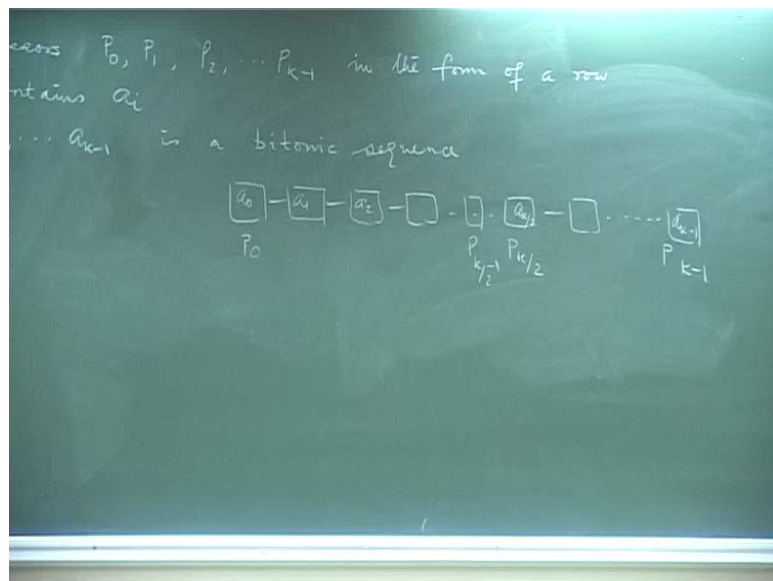 P₀, P₁, P₂, ... P_{k-1} in the form of a row
ntains a_i
... a_{k-1} is a bitonic sequence
a₀ a₁ a₂ . a_{k/2} a_{k-1}
P₀ P_{k/2-1} P_{k/2} P_{k-1}